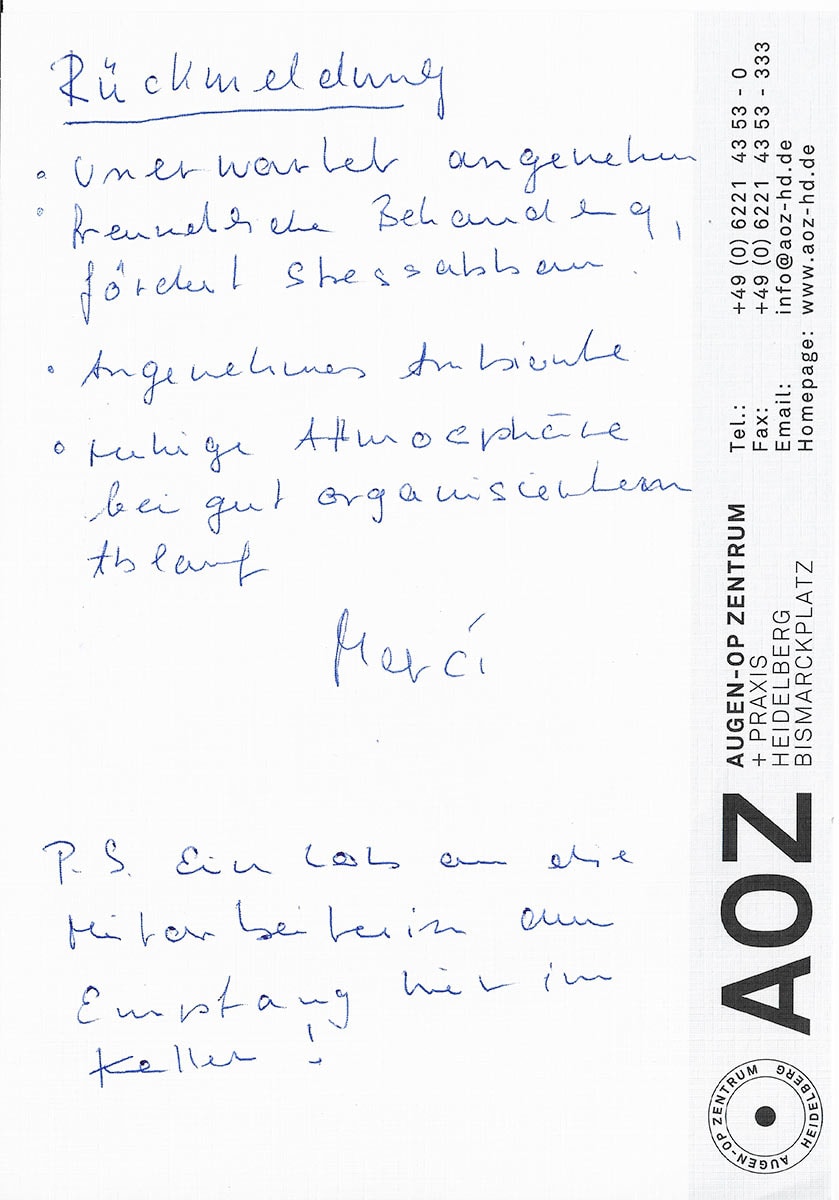 Rückmeldung
• Unerwartet angenehm
• freundliche Behandlung,
fördert Stressabbau.
• Angenehmes Ambiente
• ruhige Atmosphäre
bei gut organisiertem
Ablauf
Merci
P.S. Ein Lob an die
Mitarbeiterin am
Empfang hier im
Keller!
Tel.: +49 (0) 6221 43 53 - 0
Fax: +49 (0) 6221 43 53 - 333
Email: info@aoz-hd.de
Homepage: www.aoz-hd.de
AUGEN-OP ZENTRUM
+ PRAXIS
HEIDELBERG
BISMARCKPLATZ
AOZ
AUGEN-OP ZENTRUM HEIDELBERG